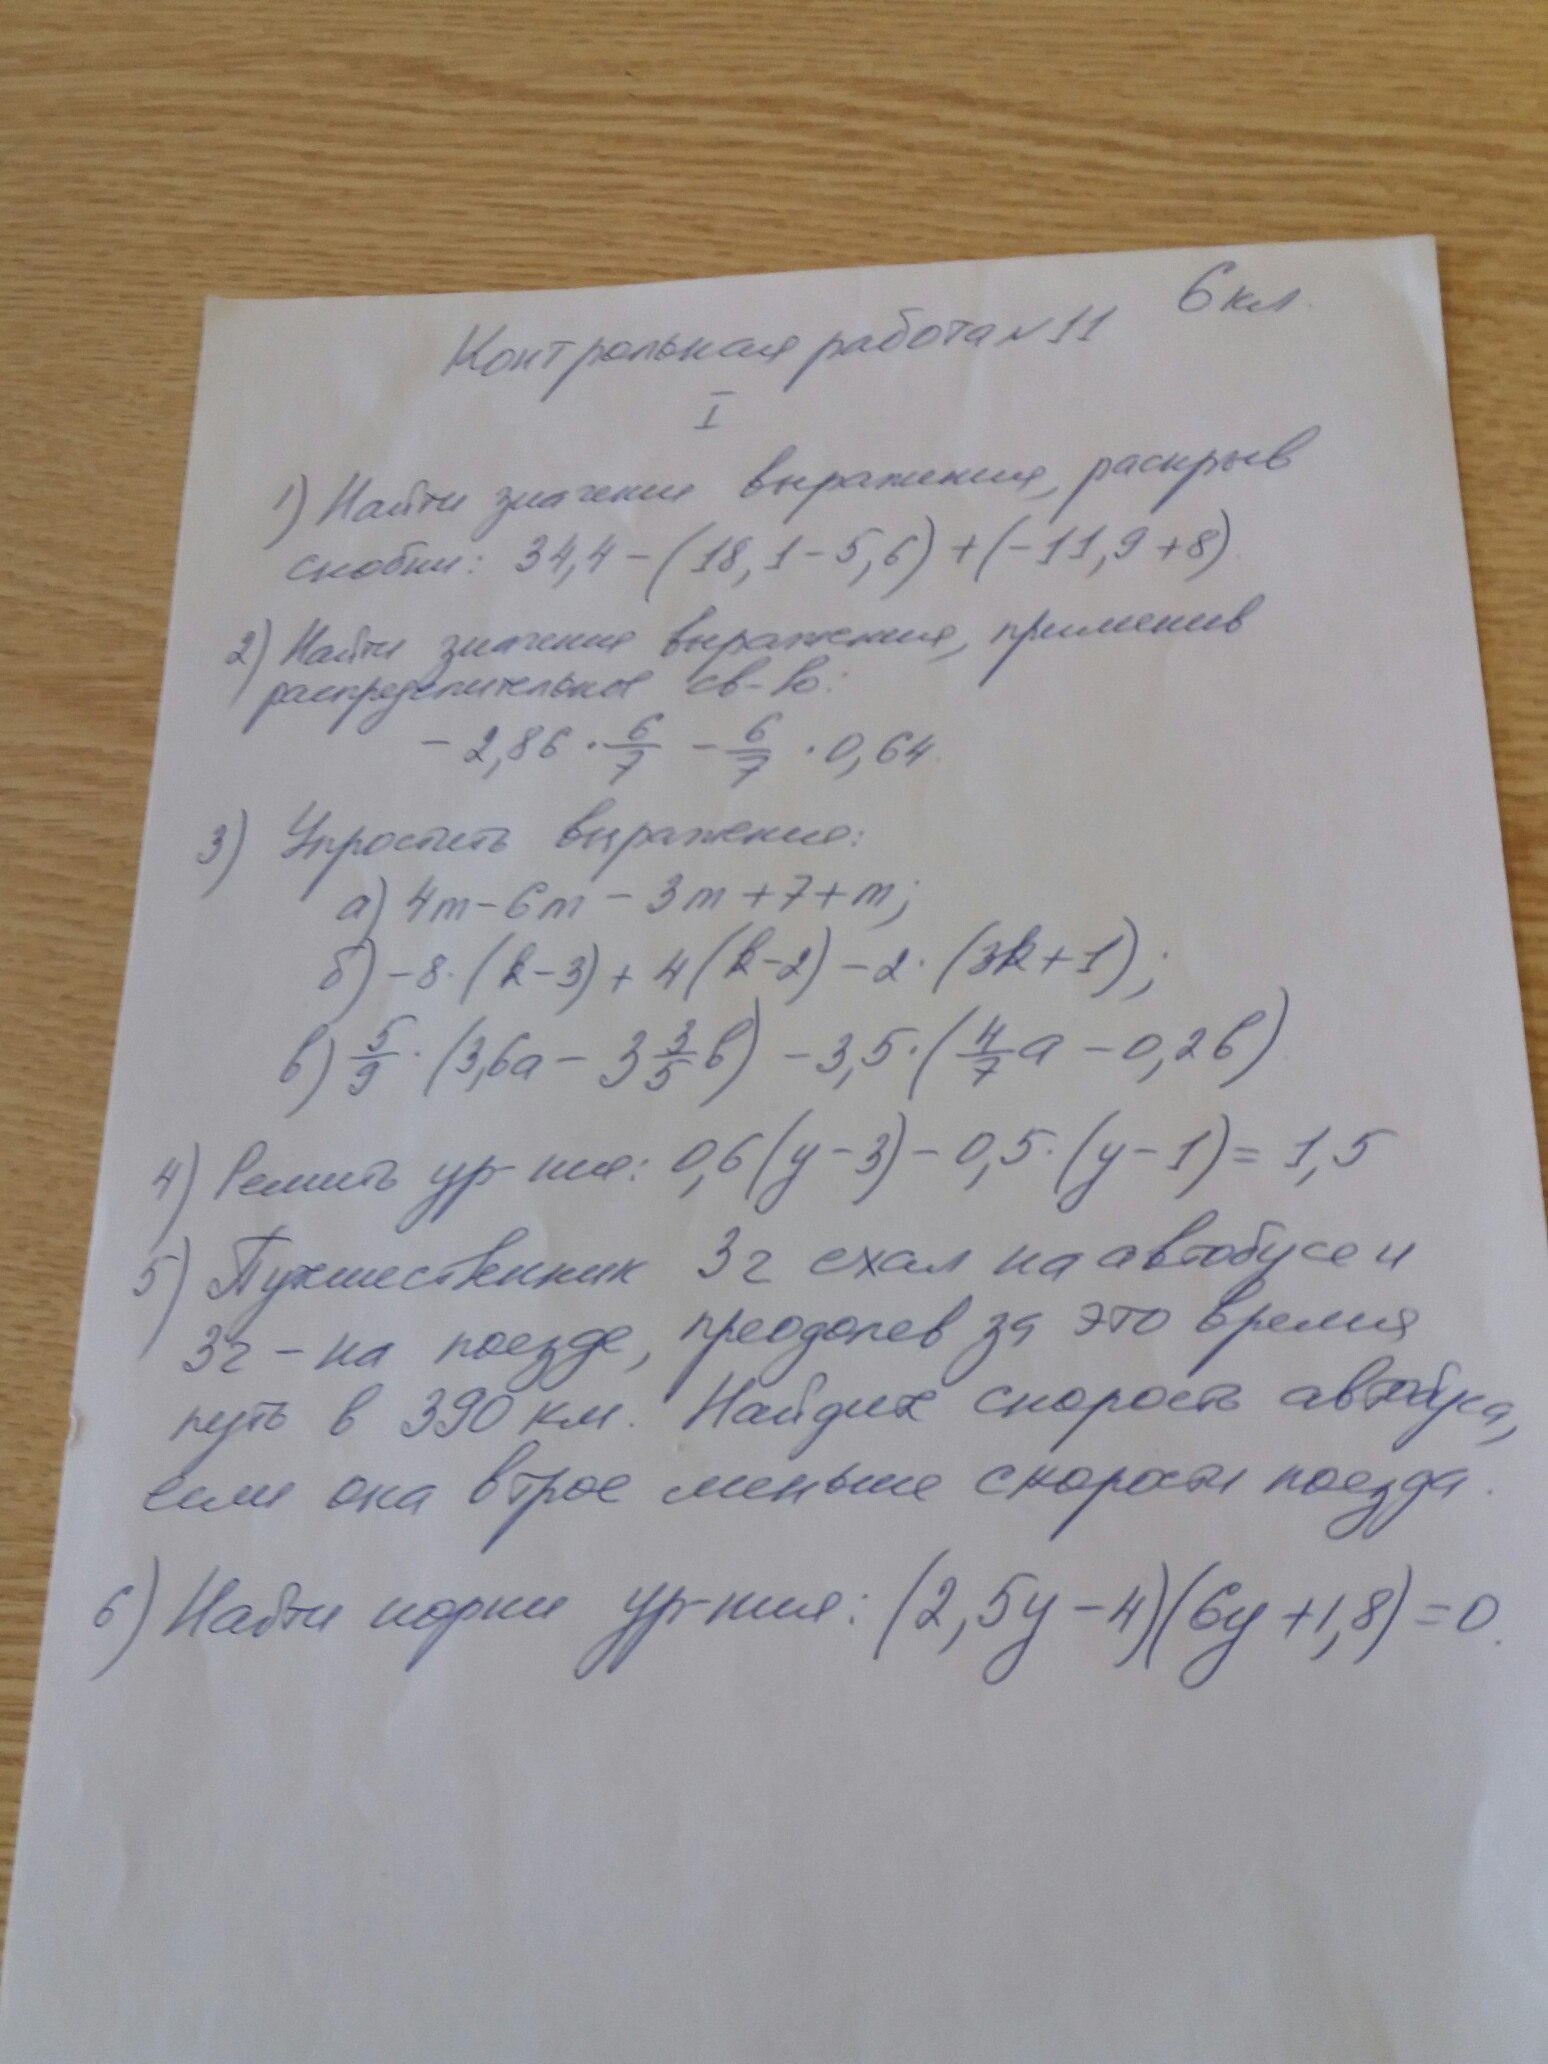 6 кл.
Контрольная работа №11
I
1) Найти значение выражения, раскрыв
скобки: 34,4 - (18,1 - 5,6) + (-11,9 + 8)
2) Найти значение выражения, применив
распределительное св-во:
- 2,86 · 6/7 - 6/7 · 0,64.
3) Упростить выражение:
а) 4m - 6m - 3m + 7 + m;
б) -8 · (k - 3) + 4 (k - 2) - 2 · (3k + 1);
в) 5/9 · (3,6а - 3 3/5 в) - 3,5 · (4/7 а - 0,2в)
4) Решить ур-ние: 0,6 (y - 3) - 0,5 · (y - 1) = 1,5
5) Путешественник 3ч ехал на автобусе и
3ч - на поезде, преодолев за это время
путь в 390 км. Найдите скорость автобуса,
если она втрое меньше скорости поезда.
6) Найти корни ур-ния: (2,5y - 4)(6y + 1,8) = 0.